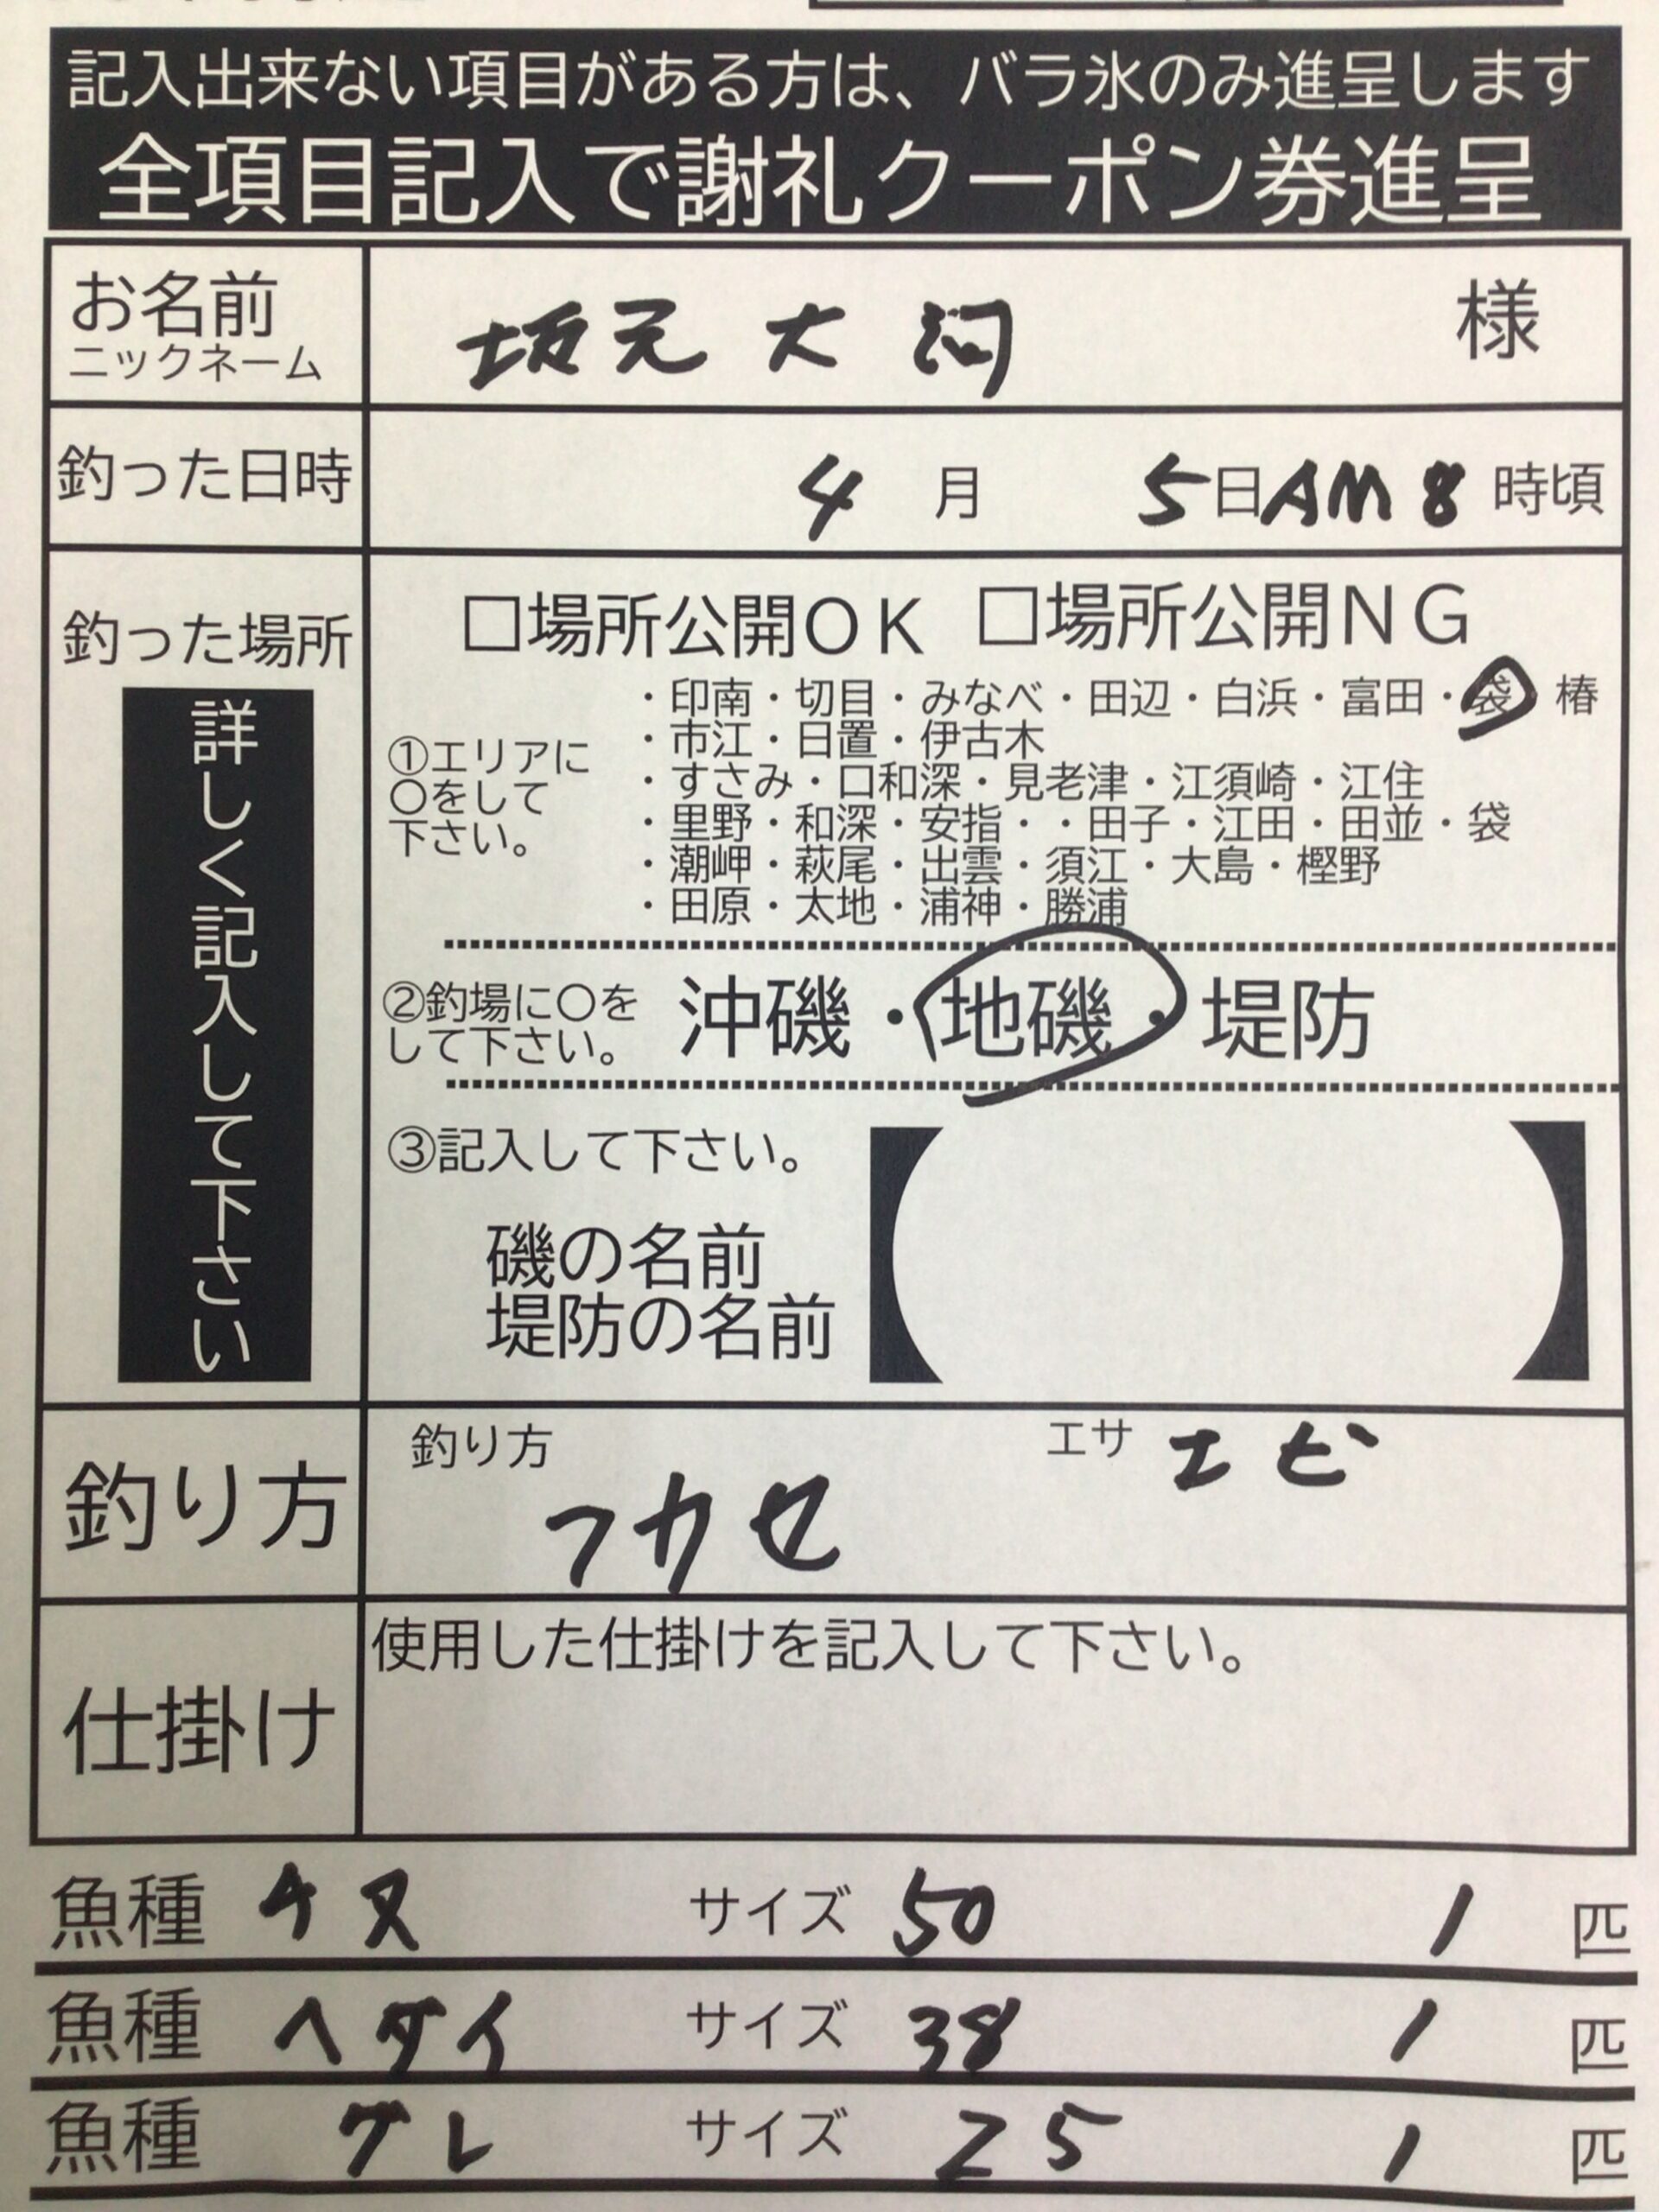 記入出来ない項目がある方は、バラ氷のみ進呈します
全項目記入で謝礼クーポン券進呈
お名前
ニックネーム
坂元大洞 様
釣った日時
4月 5日AM8時頃
釣った場所
詳しく記入して下さい
□場所公開OK □場所公開NG
①エリアに
〇をして
下さい。
・印南・切目・みなべ・田辺・白浜・富田・袋・椿
・市江・日置・伊古木
・すさみ・口和深・見老津・江須崎・江住
・里野・和深・安指・・田子・江田・田並・袋
・潮岬・萩尾・出雲・須江・大島・樫野
・田原・太地・浦神・勝浦
②釣場に〇を
して下さい。
沖磯・地磯・堤防
③記入して下さい。
磯の名前
堤防の名前
釣り方
釣り方 フカセ
エサ エビ
仕掛け
使用した仕掛けを記入して下さい。
魚種 チヌ サイズ 50 1 匹
魚種 ヘダイ サイズ 38 1 匹
魚種 グレ サイズ 25 1 匹